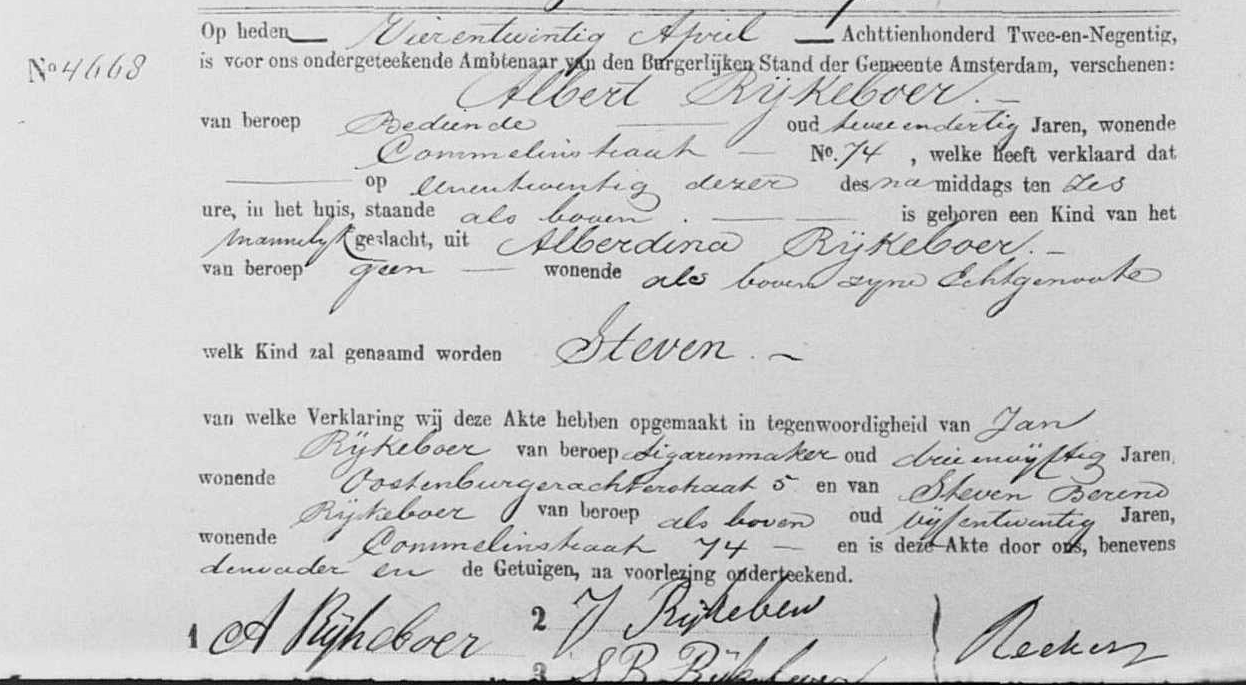 Op heden Vierentwintig April Achttienhonderd Twee-en-Negentig,
No 4668 is voor ons ondergeteekende Ambtenaar van den Burgerlijken Stand der Gemeente Amsterdam, verschenen:
Albert Rijkeboer.
van beroep Bediende oud tweeendertig Jaren, wonende
Commelinstraat No. 74, welke heeft verklaard dat
op eenentwintig dezer des na middags ten zes
ure, in het huis, staande als boven. is geboren een Kind van het
mannelijk geslacht, uit Alberdina Rijkeboer.
van beroep geen wonende als boven zyne Echtgenoote
welk Kind zal genaamd worden Steven.
van welke Verklaring wij deze Akte hebben opgemaakt in tegenwoordigheid van Jan
Rijkeboer van beroep sigarenmaker oud drieenvijftig Jaren,
wonende Oostenburgerachterstraat 5 en van Steven Berend
Rijkeboer van beroep als boven oud vijfentwintig Jaren,
wonende Commelinstraat 74 en is deze Akte door ons, benevens
den vader en de Getuigen, na voorlezing onderteekend.
1 A Rijkeboer 2 J Rijkeboer
3 S B Rijkeboer